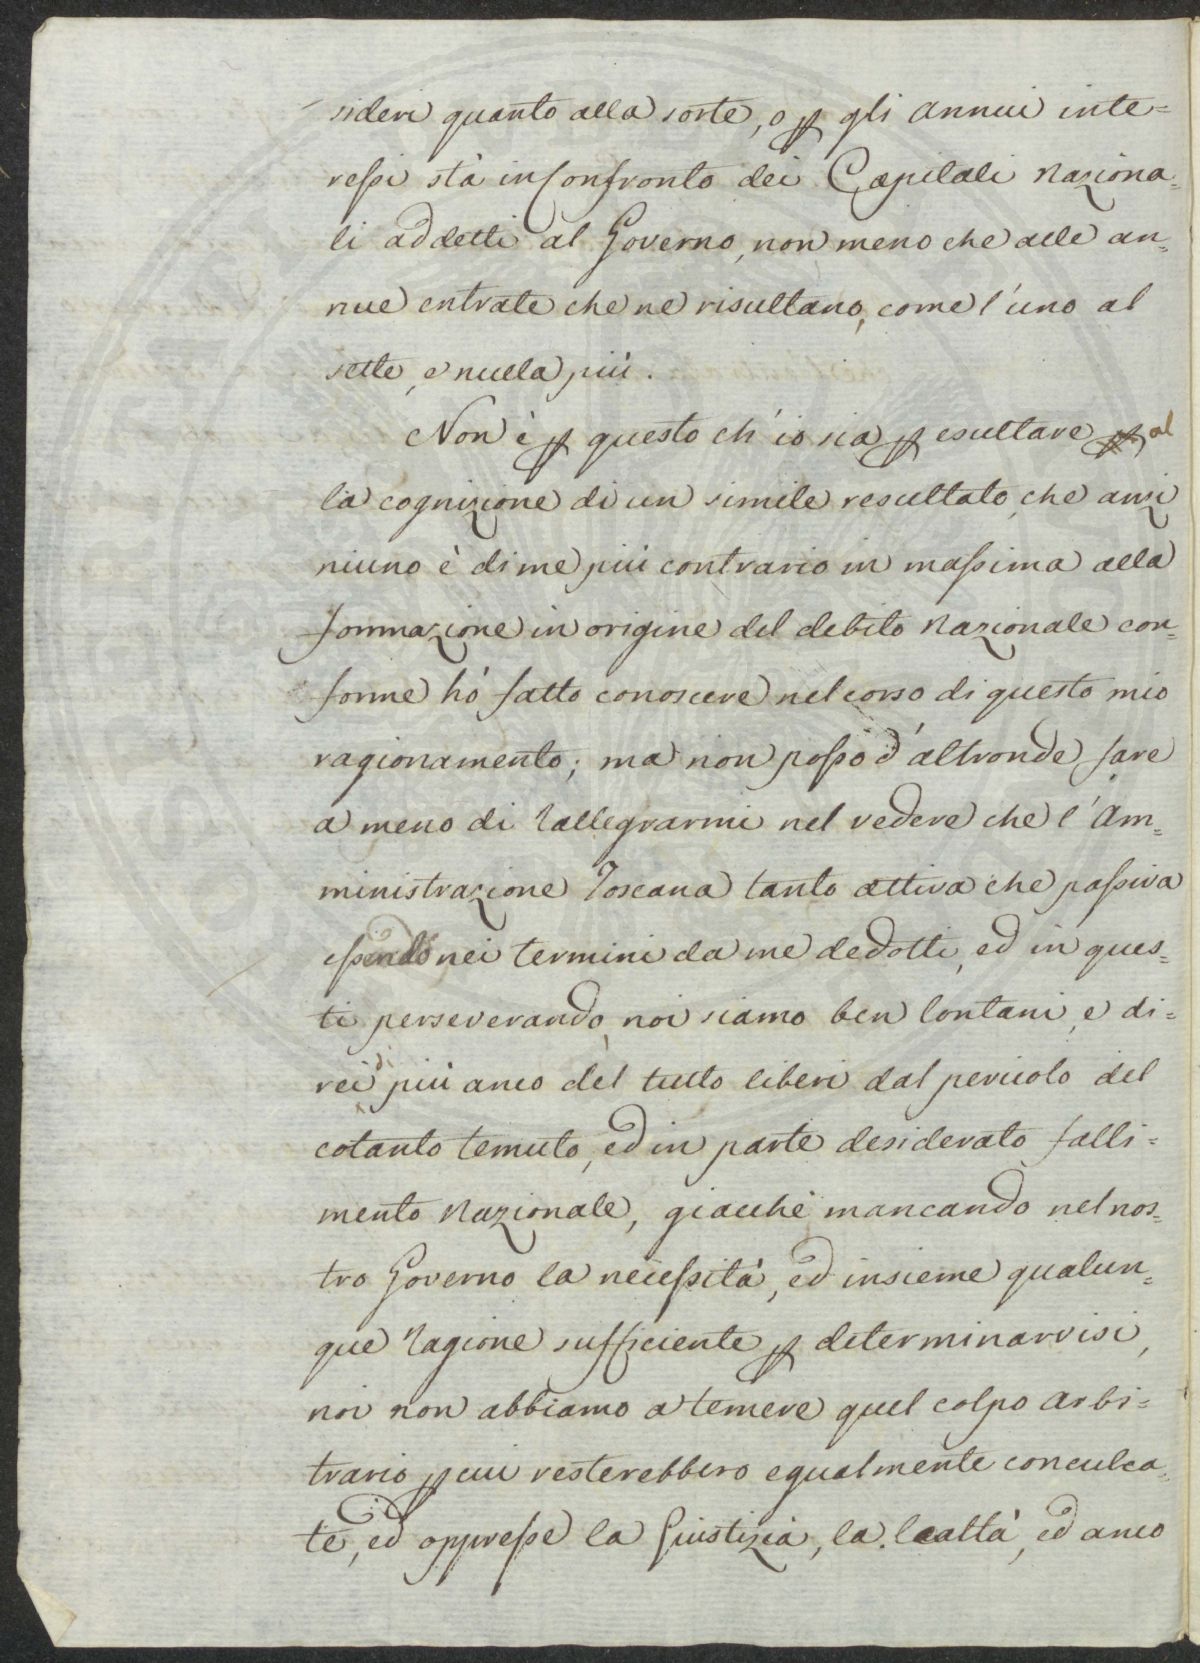 sideri quanto alla sorte, o ꝑ gli annui inte=
ressi stà in confronto dei Capitali Naziona=
li addetti al Governo, non meno che alle an=
nue entrate che ne risultano, come l'uno al
sette, e nulla più.
Non è ꝑ questo ch'io sia ꝑ esultare al
la cognizione di un simile resultato, che anzi
niuno è di me più contrario in massima alla
formazione in origine del debito Nazionale con=
forme hò fatto conoscere nel corso di questo mio
ragionamento; ma non posso d'altronde fare
a meno di rallegrarmi nel vedere che l'Am=
ministrazione Toscana tanto attiva che passiva
essendo nei termini da me dedotti, ed in ques=
ti perseverando, noi siamo ben lontani, e di=
rei di più anco del tutto liberi dal pericolo del
cotanto temuto, ed in parte desiderato falli=
mento Nazionale, giacchè mancando nel nos=
tro Governo la necessità, ed insieme qualun=
que ragione sufficiente ꝑ determinarvisi,
noi non abbiamo a temere quel colpo arbi=
trario ꝑ cui resterebbero egualmente conculca=
te, ed oppresse la Giustizia, la lealtà, ed anco